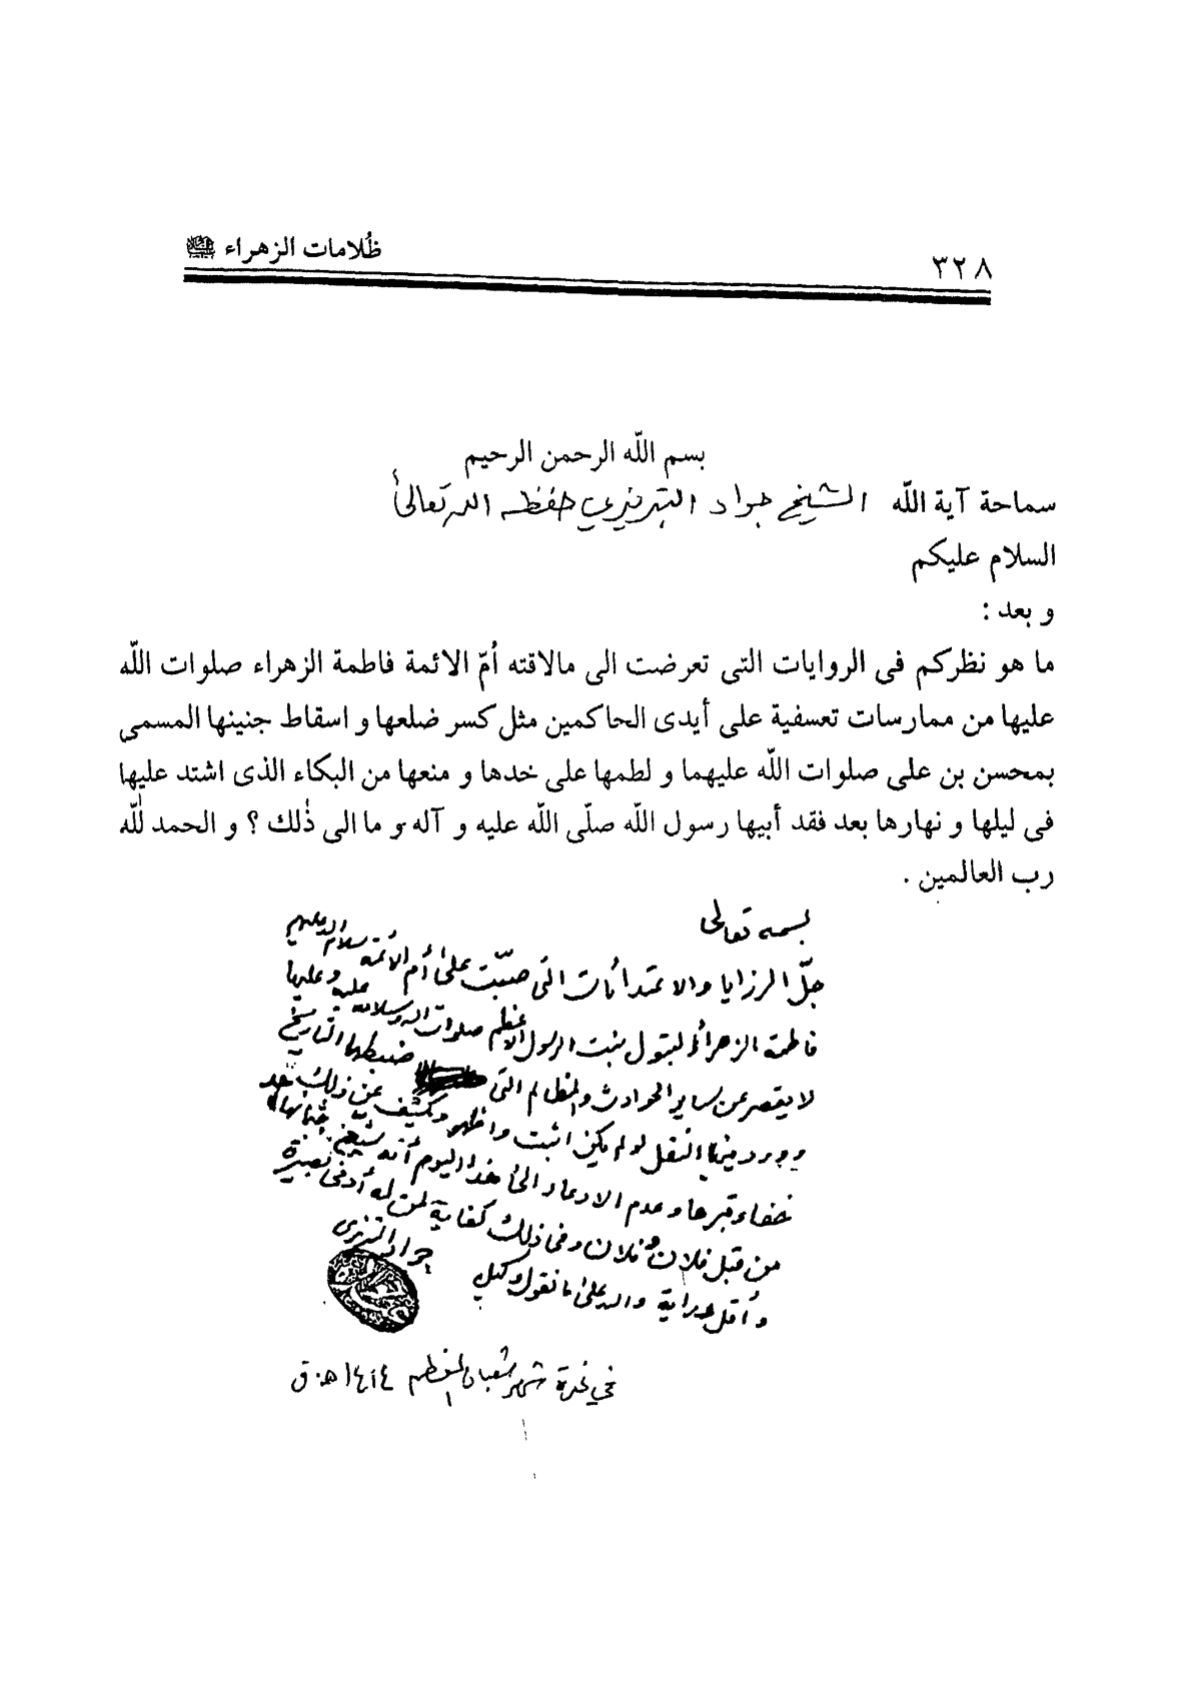 ٣٢٨
ظُلامات الزهراء
بسم اللّه الرحمن الرحيم
سماحة آية اللّه الشيخ جواد التبريزي حفظه الله تعالى
السلام عليكم
و بعد :
ما هو نظركم فى الروايات التى تعرضت الى مالاقته أمّ الائمة فاطمة الزهراء صلوات اللّه
عليها من ممارسات تعسفية على أيدى الحاكمين مثل كسر ضلعها و اسقاط جنينها المسمى
بمحسن بن على صلوات اللّه عليهما و لطمها على خدها و منعها من البكاء الذى اشتد عليها
فى ليلها و نهارها بعد فقد أبيها رسول اللّه صلّى اللّه عليه و آله و ما الى ذٰلك ؟ و الحمد للّٰه
رب العالمين .
بسمه تعالى
جلّ الرزايا والاعتداءات التى صبّت على أم الأئمة سلام الله عليهم
فاطمة الزهراء البتول بنت الرسول الأعظم صلوات الله وسلامه عليه وعليها
لا يقصر عن ساير الحوادث والمظالم التى ضبطها التاريخ
وورد فيها النقل لو لم يكن اثبت واظهر ويكشف عن ذلك
خفاء قبرها وعدم الاد الى هذا اليوم أنه
من قبل فلان وفلان وفى ذلك كفاية لمن له أدنى بصيرة
وأقل دراية والله على ما نقول وكيل
جواد التبريزى
في غرة شهر شعبان المعظم ١٤١٤ هـ.ق